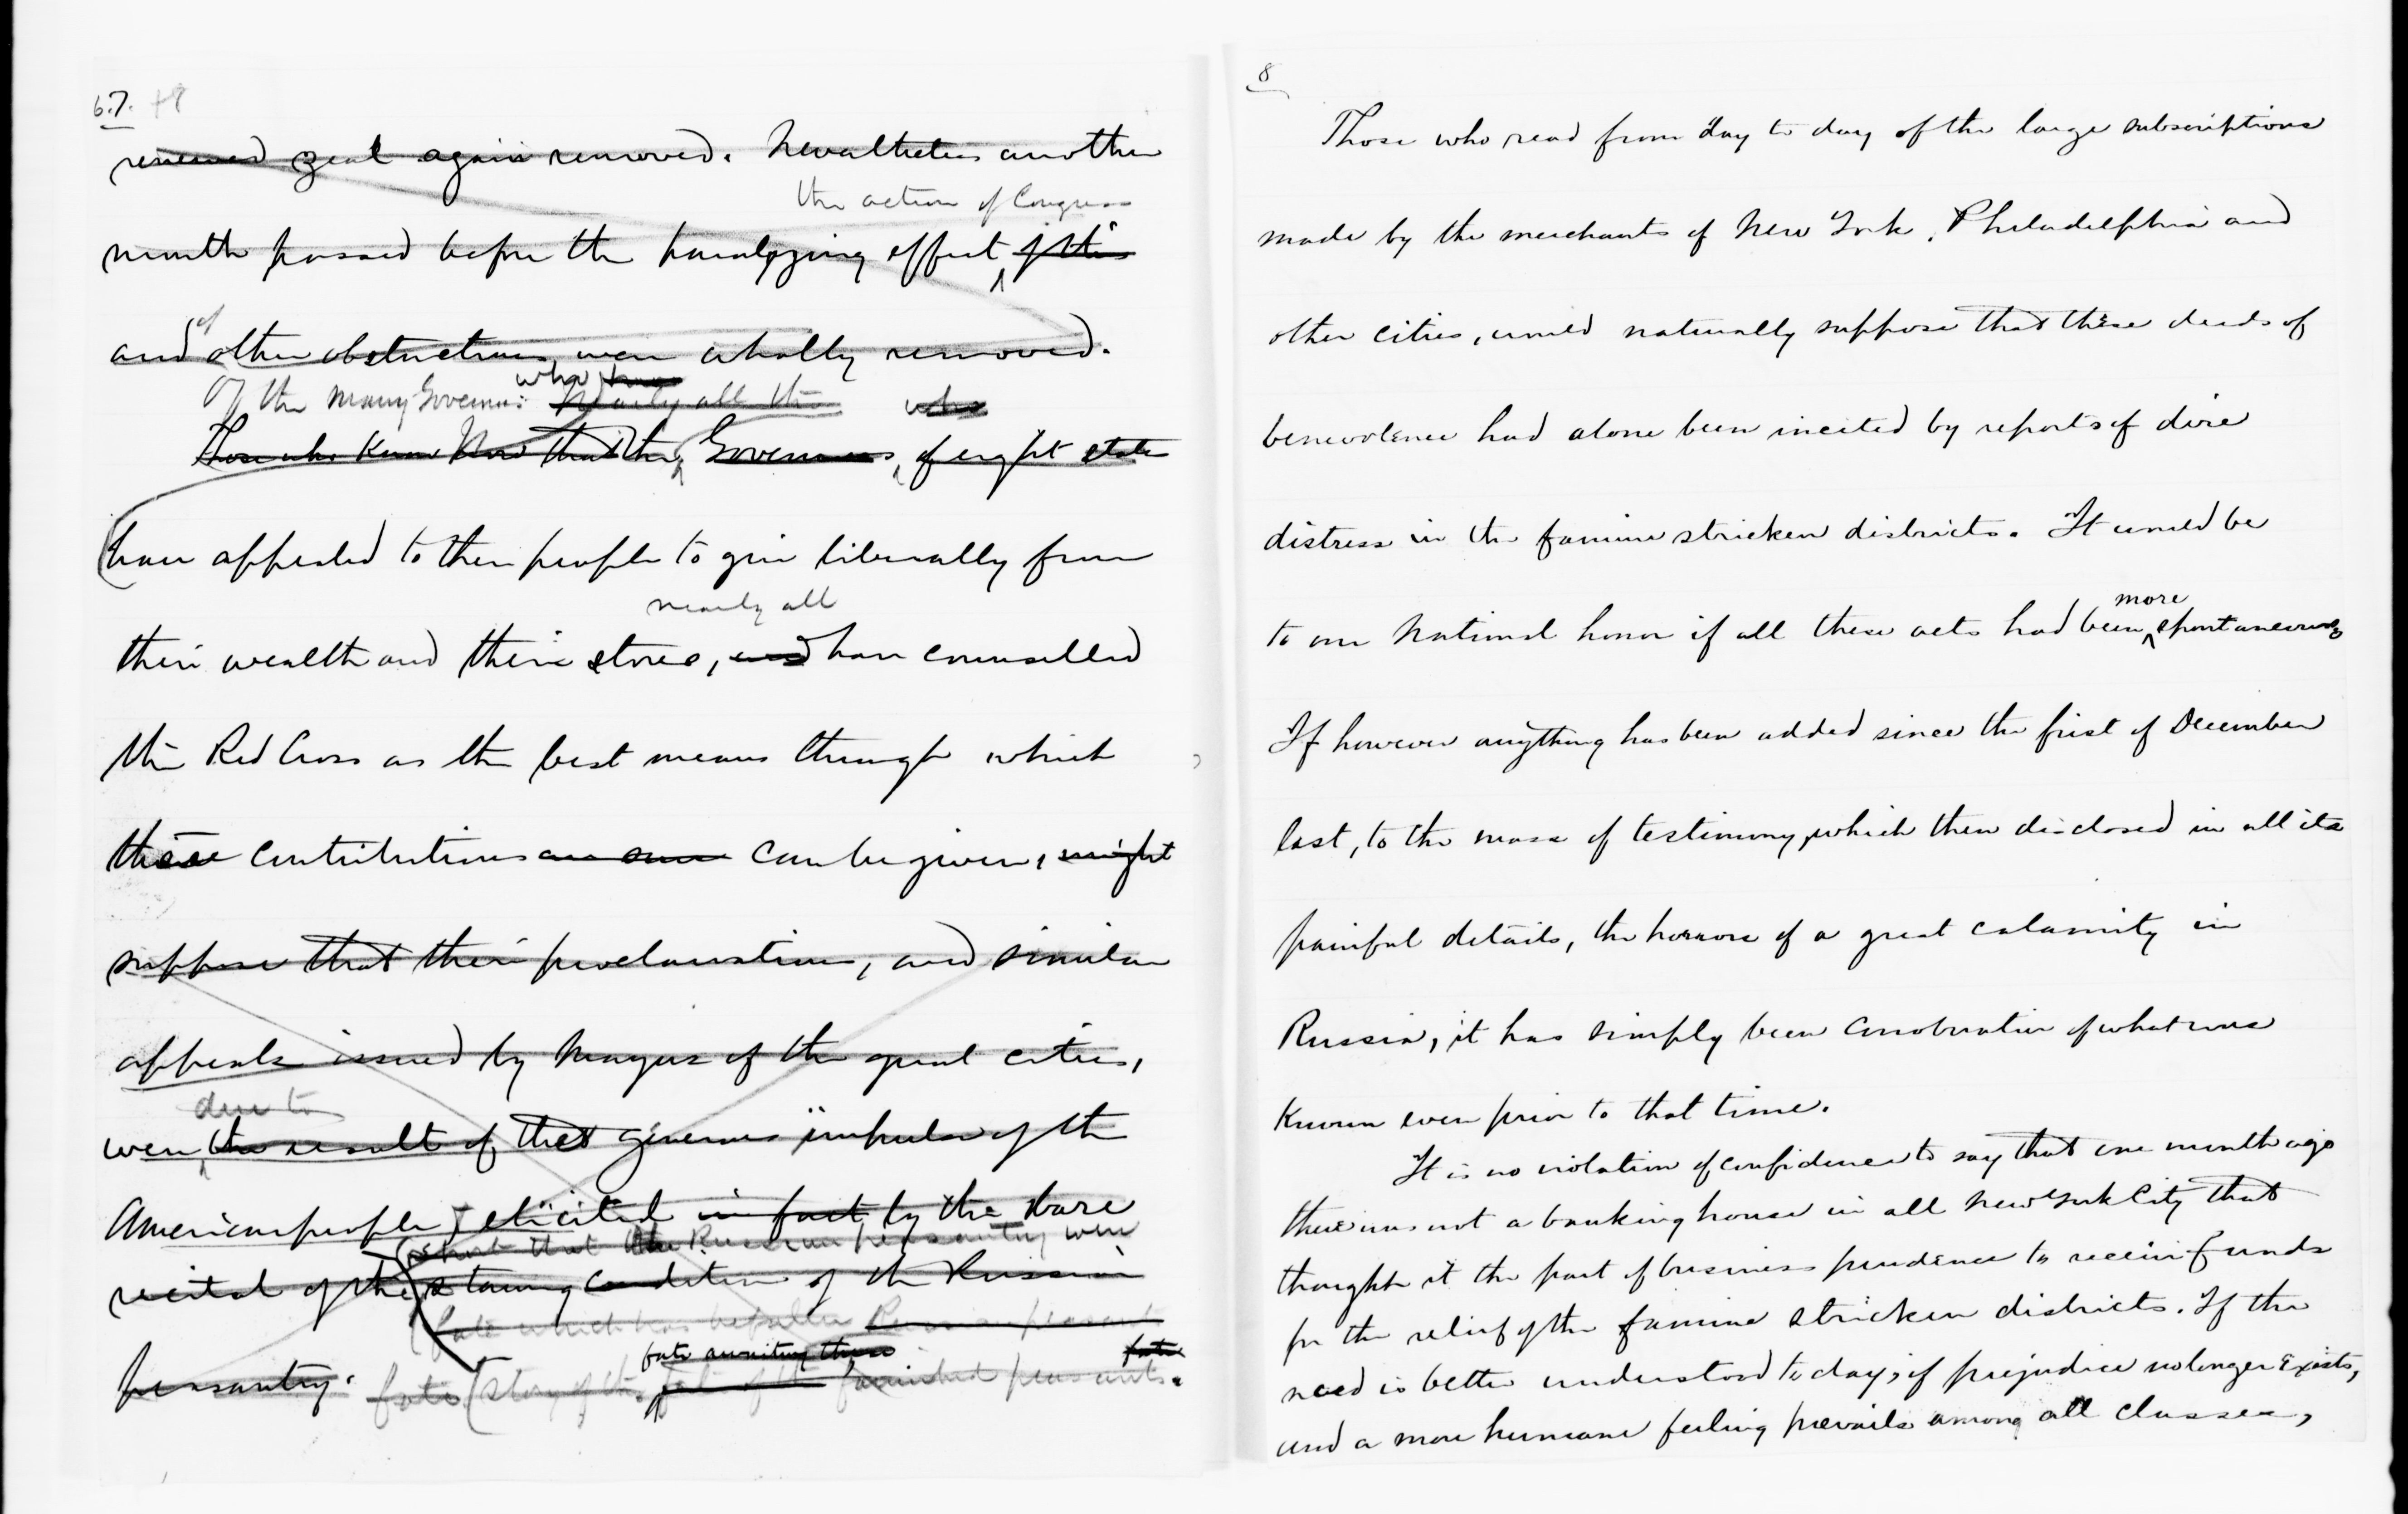 6.7.
renewed zeal again removed. Nevertheless another
the action of Congress
month passed before the paralyzing effect of this
of
and other obstructions were wholly removed.
who have
Of the many Governors Nearly all the who
Those who know now that the Governors, of eight states
have appealed to their people to give liberally from
nearly all
their wealth and their stores, and have counselled
the Red Cross as the best means through which
these contributions can be given, might
suppose that their proclamations, and similar
appeals issued by Mayors of the great cities,
due to
were the result of that generous impulse of the
American people, elicited in fact by the bare
report that the Russian peasantry were
recital of the starving condition of the Russian
fate which has befallen Russian peasant
fate awaiting these fate
peasantry. fate (story of the fate of the famished peasants.
8
Those who read from day to day of the large subscriptions
made by the merchants of New York, Philadelphia and
other cities, would naturally suppose that these deeds of
benevolence had alone been incited by reports of dire
distress in the famine stricken districts. It would be
more
to our National honor if all these acts had been spontaneous
If however anything has been added since the first of December
last, to the mass of testimony, which then disclosed in all its
painful details, the horrors of a great calamity in
Russia, it has simply been corroborative of what was
known even prior to that time.
It is no violation of confidence to say that one month ago
there was not a banking house in all New York City that
thought it the part of business prudence to receive funds
for the relief of the famine stricken districts. If the
need is better understood to day, if prejudice no longer exists,
and a more humane feeling prevails among all classes,